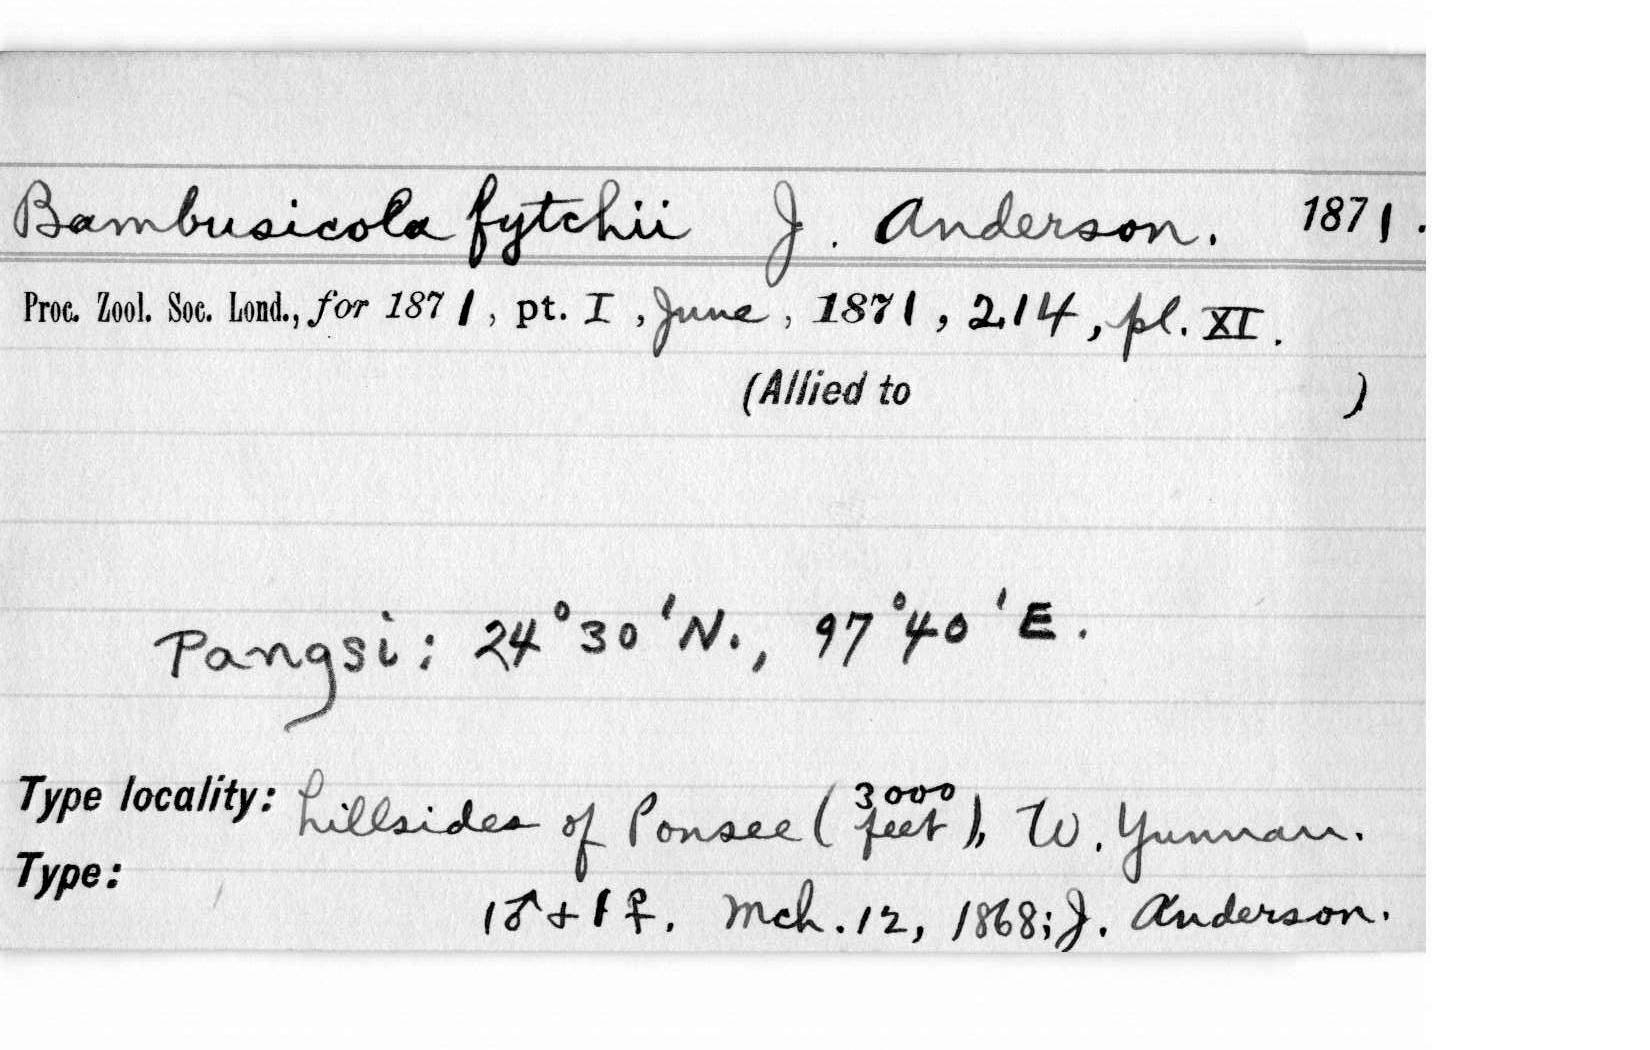 Bambusicola fytchii J. Anderson. 1871.
Proc. Zool. Soc. Lond., for 1871, pt. I, June, 1871, 214, pl. XI.
(Allied to )
Pangsi: 24°30'N., 97°40'E.
Type locality: hillsides of Ponsee (3000 feet), W. Yunnan.
Type:
1♂ + 1♀. Mch. 12, 1868; J. Anderson.